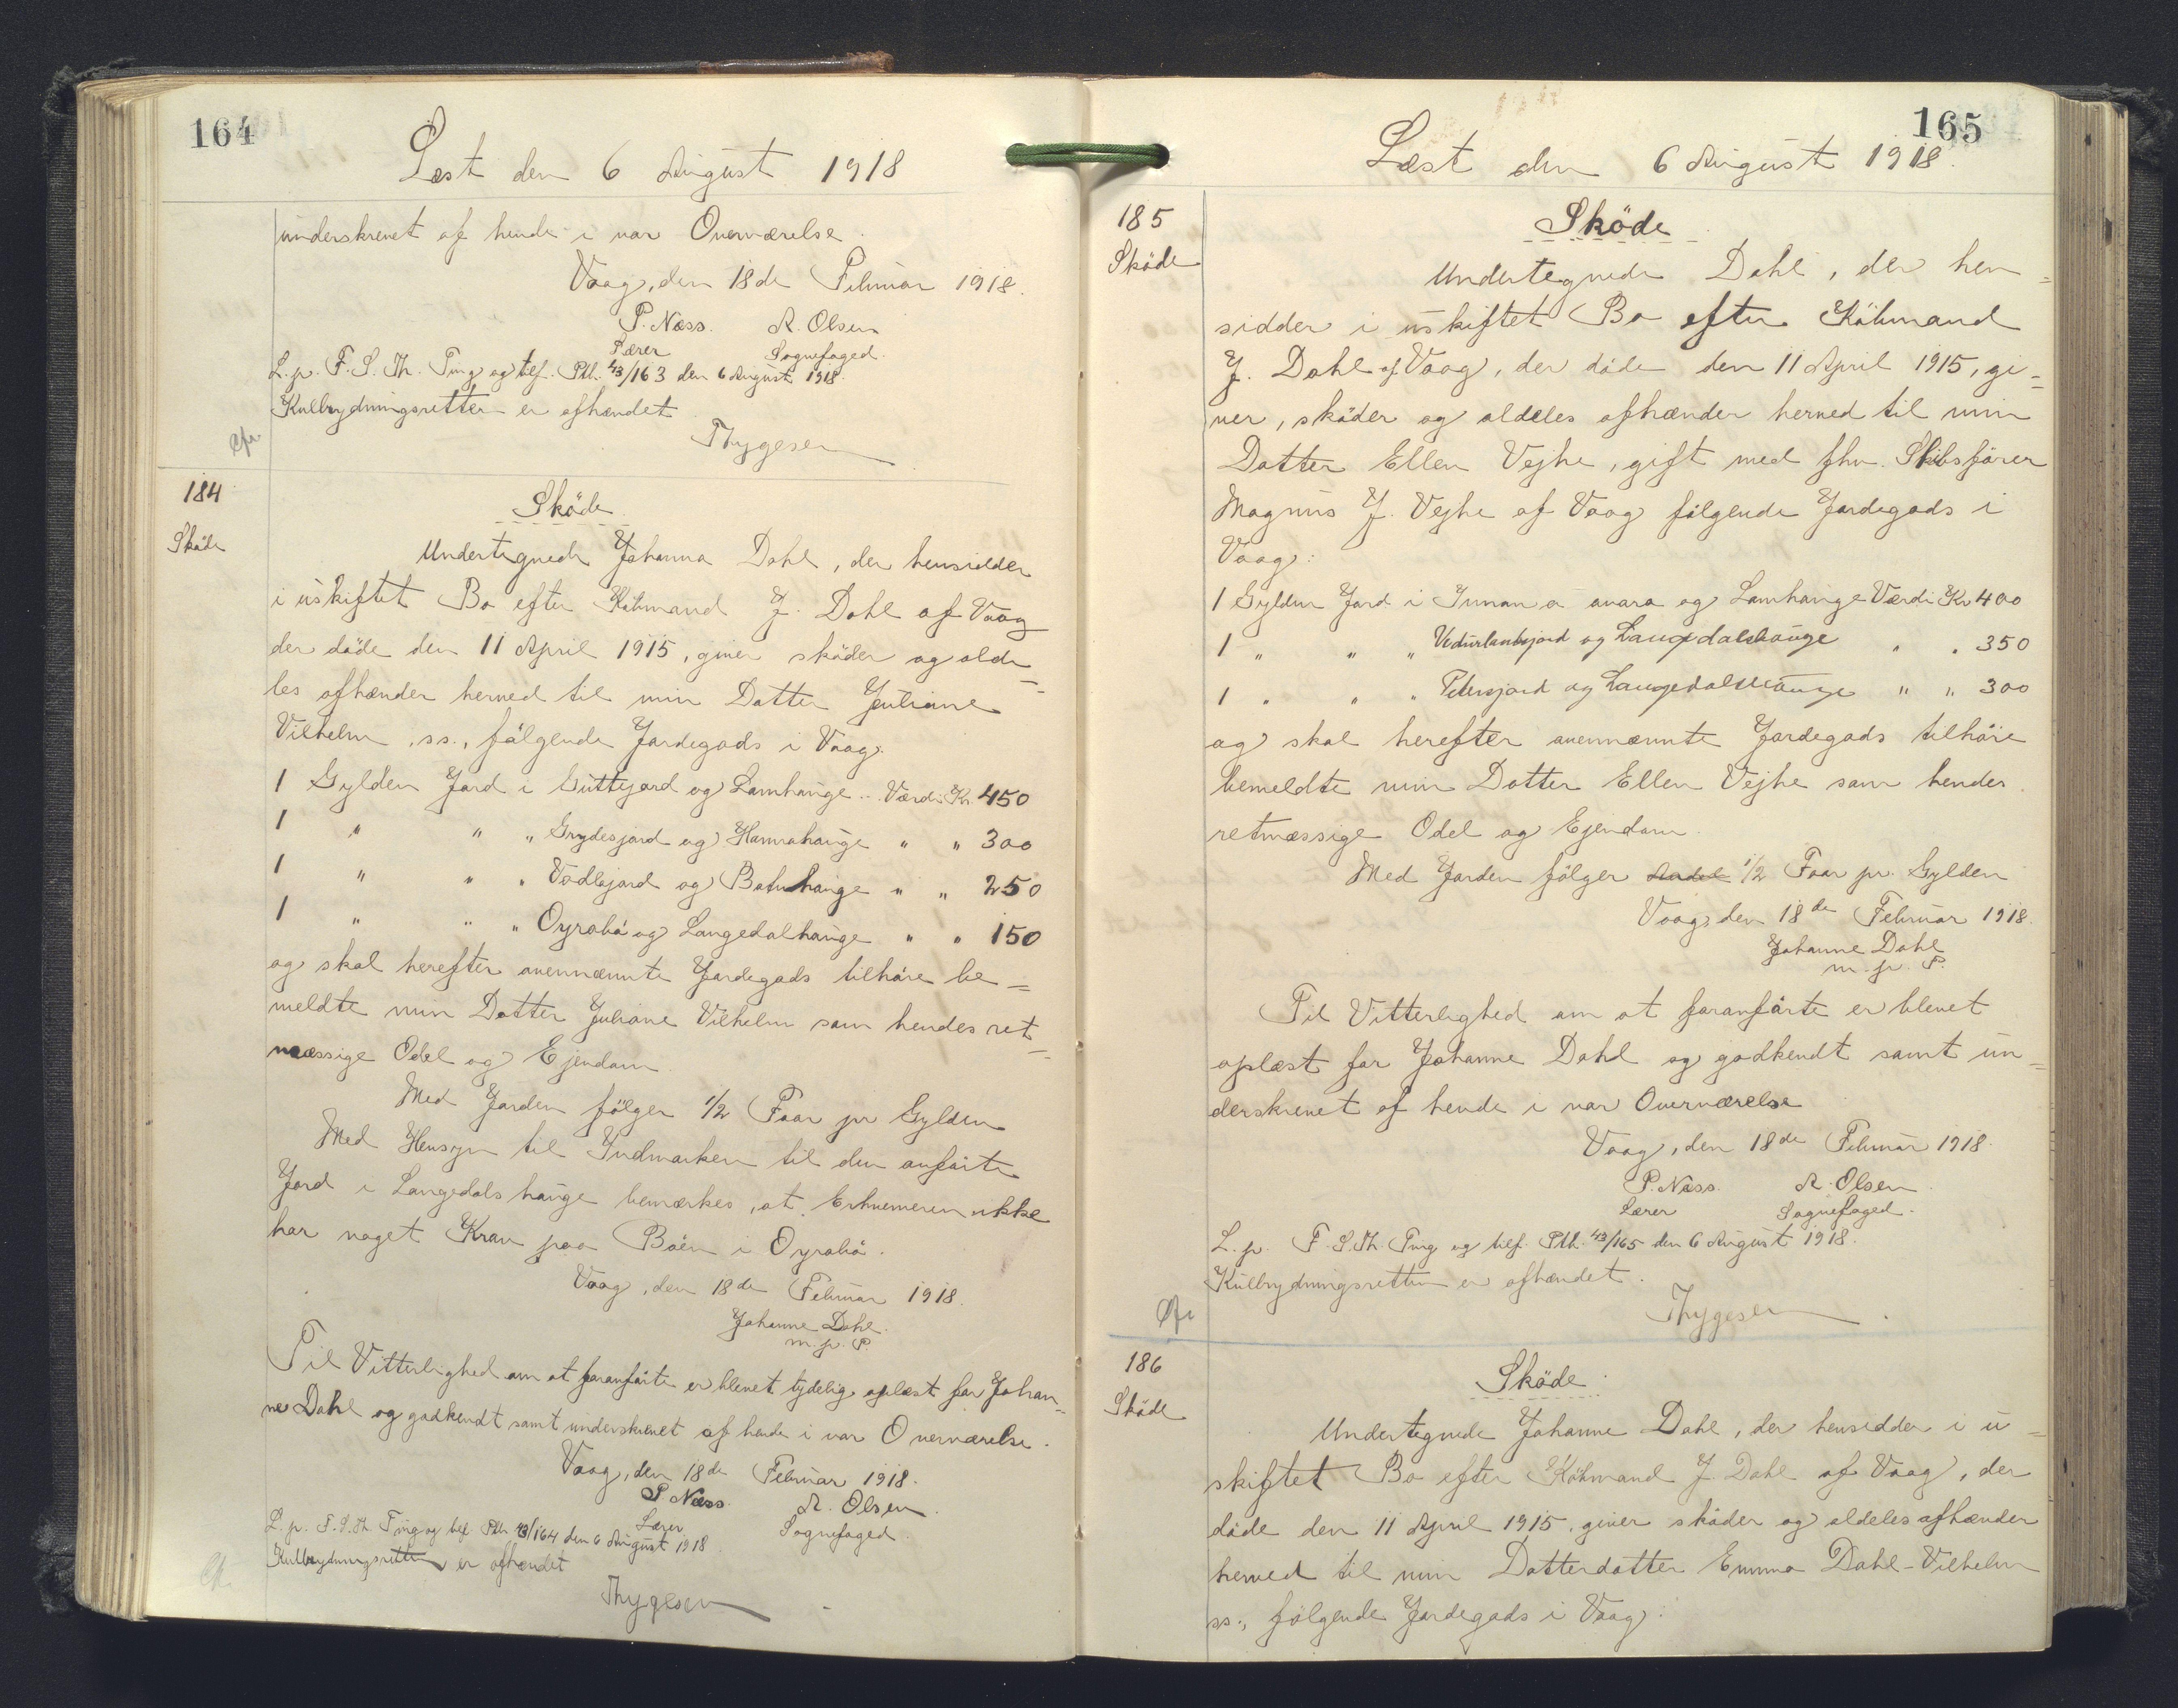 164
Læst den 6 August 1918
underskrevet af hende i vor Overværelse.
Vaag, den 18de Februar 1918.
P. Næss. A. Olsen
Lærer Sognefoged.
L. p. F. S. Th. Ting og tilf. Ptb. 43/163 den 6 August 1918.
Kulbrydningsretten er afhændet
Thygesen
184
Sköde
Sköde.
Undertegnede Johanna Dahl, der hensidder
i uskiftet Bo efter Köbmand J. Dahl af Vaag
der döde den 11 April 1915, giver sköder og alde-
les afhænder herved til min Datter Juliane
Vilhelm, ss., fölgende Jordegods i Vaag:
1 Gylden Jord i Guttejord og Lamhauge .. Værdi Kr. 450
1 " " " Grydesjord og Hamrahauge " " 300
1 " " " Vadlejord og Botnhauge " " 250
1 " " " Oyrabö og Langedalhauge " " 150
og skal herefter ovennævnte Jordegods tilhöre be=
meldte min Datter Juliane Vilhelm som hendes ret=
mæssige Odel og Ejendom
Med Jorden fölger 1/2 Faar pr Gylden
Med Hensyn til Indmarken til den anförte
Jord i Langedals hauge bemærkes, at Erhververen ikke
har noget Krav paa Böen i Oyrabö.
Vaag, den 18de Februar 1918.
Johanne Dahl.
m. p. P
Til Vitterlighed om at foranförte er blevet tydelig oplæst for Johan=
ne Dahl og godkendt samt underskrevet af hende i vor Overværelse.
Vaag, den 18de Februar 1918.
P. Næss. A. Olsen.
Lærer Sognefoged.
L. p. F. S. Th. Ting og tilf. Ptb. 43/164 den 6 August 1918.
Kulbrydningsretten er afhændet
Thygesen
165
Læst den 6 August 1918.
185
Sköde
Sköde.
Undertegnede Dahl, der hen=
sidder i uskiftet Bo efter Köbmand
J. Dahl af Vaag, der döde den 11 April 1915, gi=
ver, sköder og aldeles afhænder herved til min
Datter Ellen Vejhe, gift med fhv. Skibsförer
Magnus J. Vejhe af Vaag fölgende Jordegods i
Vaag:
1 Gylden Jord i Innan a anara og Lamhauge Værdi Kr 400
1 " " " Vedurlandsjord og Langdalshauge " " 350
1 " " " Petersjord og Langedalshauge " " 300
og skal herefter ovennævnte Jordegods tilhöre
bemeldte min Datter Ellen Vejhe som hendes
retmæssige Odel og Ejendom.
Med Jorden fölger 1/2 Faar pr. Gylden
Vaag, den 18de Februar 1918.
Johanne Dahl
m. p. P.
Til Vitterlighed om at foranförte er blevet
oplæst for Johanne Dahl og godkendt samt un=
derskrevet af hende i vor Overværelse
Vaag, den 18de Februar 1918.
P. Næss. A. Olsen.
Lærer Sognefoged.
L. p. F. S. Th. Ting og tilf. Ptb. 43/165 den 6 August 1918.
Kulbrydningsretten er afhændet.
Thygesen
186
Sköde
Sköde.
Undertegnede Johanne Dahl, der hensidder i u=
skiftet Bo efter Köbmand J Dahl af Vaag, der
döde den 11 April 1915, giver sköder og aldeles afhænder
herved til min Datterdatter Emma Dahl-Vilhelm
ss., fölgende Jordegods i Vaag: